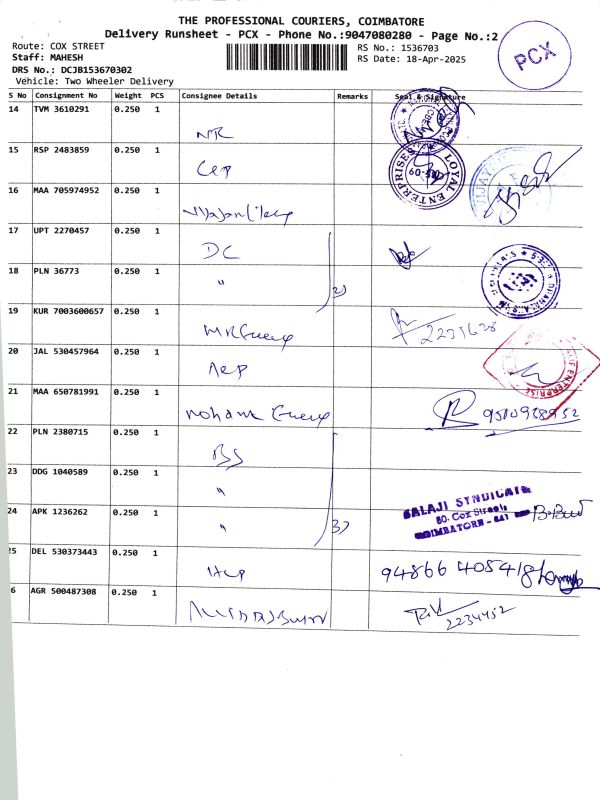 THE PROFESSIONAL COURIERS, COIMBATORE
Delivery Runsheet - PCX - Phone No.:9047080280 - Page No.:2
Route: COX STREET
Staff: MAHESH
DRS No.: DCJB153670302
Vehicle: Two Wheeler Delivery
RS No.: 1536703
RS Date: 18-Apr-2025
PCX
S No Consignment No Weight PCS Consignee Details Remarks Seal & Signature
14 TVM 3610291 0.250 1
15 RSP 2483859 0.250 1
LOYAL ENTERPRISES
16 MAA 705974952 0.250 1
17 UPT 2270457 0.250 1
DC
18 PLN 36773 0.250 1
" 2)
19 KUR 7003600657 0.250 1
2231628
20 JAL 530457964 0.250 1
ENTERPRISE
21 MAA 650781991 0.250 1
22 PLN 2380715 0.250 1
BS
23 DDG 1040589 0.250 1
"
24 APK 1236262 0.250 1
" 3)
BALAJI SYNDICATE
80, Cox Street,
COIMBATORE - 641
25 DEL 530373443 0.250 1
94866 405418
6 AGR 500487308 0.250 1
2234452